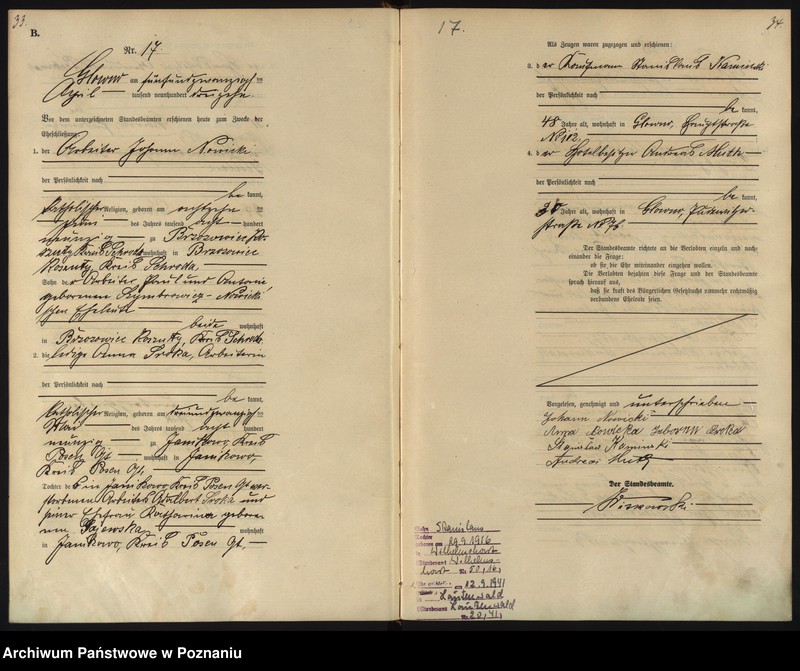 33.
B.
Nr. 17.
Glowno am fünfundzwanzigsten
April tausend neunhundert dreizehn.
Vor dem unterzeichneten Standesbeamten erschienen heute zum Zwecke der
Eheschließung:
1. der Arbeiter Johann Nowicki
der Persönlichkeit nach
be kannt,
katholischer Religion, geboren am achtzehnten
Juni des Jahres tausend acht hundert
neunzig zu
Kreis Schroda, wohnhaft in Brzozowiec
Kreis Schroda,
Sohn des Arbeiter Paul und Antonie,
geborenen Nowicki
schen Eheleute
beide wohnhaft
in Brzozowiec Kreis Schroda.
2. die ledige Anna Sroka, Arbeiterin
der Persönlichkeit nach
be kannt,
katholischer Religion, geboren am dreiundzwanzigsten
Mai des Jahres tausend acht hundert
neunzig zu Janikowo, Kreis
Posen Ost, wohnhaft in Janikowo,
Kreis Posen Ost,
Tochter des in Janikowo, Kreis Posen Ost ver-
storbenen Arbeiters Adalbert Sroka und
seiner Ehefrau Katharina gebore-
nen Gajewska wohnhaft
in Janikowo, Kreis Posen Ost.
17.
34.
Als Zeugen waren zugezogen und erschienen:
3. der Kaufmann Stanislaus Kaminski
der Persönlichkeit nach
be kannt,
48 Jahre alt, wohnhaft in Glowno, Hauptstraße
No 12,
4. der Hotelbesitzer Andreas Muth
der Persönlichkeit nach
be kannt,
Jahre alt, wohnhaft in Glowno,
straße No
Der Standesbeamte richtete an die Verlobten einzeln und nach-
einander die Frage:
ob sie die Ehe miteinander eingehen wollen.
Die Verlobten bejahten diese Frage und der Standesbeamte
sprach hierauf aus,
daß sie kraft des Bürgerlichen Gesetzbuchs nunmehr rechtmäßig
verbundene Eheleute seien.
Vorgelesen, genehmigt und unterschrieben
Johann Nowicki
Anna Nowicka geborene Sroka
Stanislaus Kaminski
Andreas Muth
Der Standesbeamte.
Sohn Stanislaus
Tochter
geboren am 19.9.1916
in Wilhelmshorst
Standesamt Wilhelms-
horst Nr. 50/16,
am 13.9.1941
Lautenwald
Standesamt Lautenwald
Nr. 20/41,
Archiwum Państwowe w Poznaniu